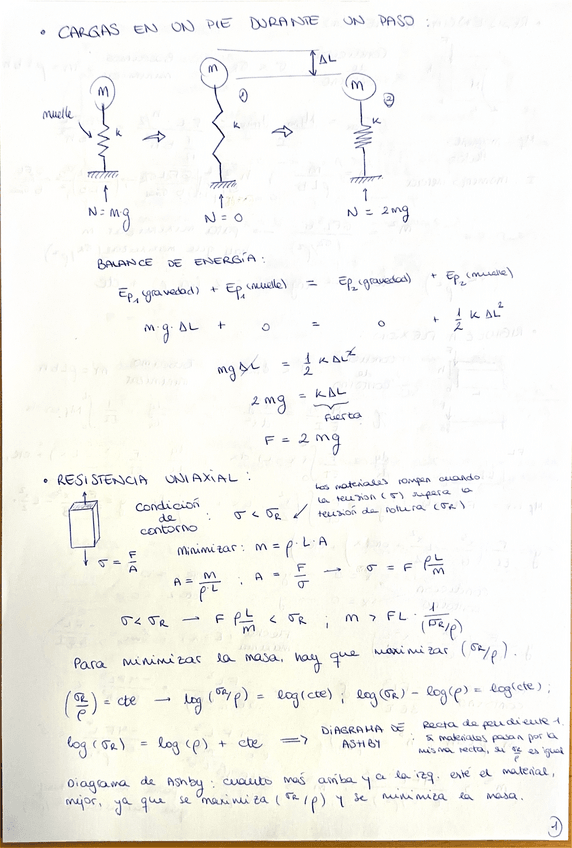 • CARGAS EN UN PIE DURANTE UN PASO :
ΔL
M
M
M
①
②
muelle
k
k
k
N = m·g
N = 0
N = 2mg
BALANCE DE ENERGÍA :
Ep₁ (gravedad) + Ep₁ (muelle) = Ep₂ (gravedad) + Ep₂ (muelle)
m·g·ΔL + 0 = 0 + 1/2 k ΔL²
mgΔL = 1/2 k ΔL²
2mg = kΔL
Fuerza
F = 2mg
• RESISTENCIA UNIAXIAL :
Condición de contorno : σ < σR
Los materiales rompen cuando
la tensión (σ) supera la
tensión de rotura (σR)
σ = F/A
Minimizar : m = ρ·L·A
A = m/ρ·L ; A = F/σ → σ = F ρL/m
σ < σR → F ρL/m < σR ; m > FL · 1/(σR/ρ)
Para minimizar la masa, hay que maximizar (σR/ρ).
(σR/ρ) = cte → log(σR/ρ) = log(cte) ; log(σR) - log(ρ) = log(cte) ;
log(σR) = log(ρ) + cte ⟹ DIAGRAMA DE ASHBY :
Recta de pendiente 1.
Si materiales pasan por la
misma recta, su σR/ρ es igual
Diagrama de Ashby : cuanto más arriba y a la izq. esté el material,
mejor, ya que se maximiza (σR/ρ) y se minimiza la masa.
①